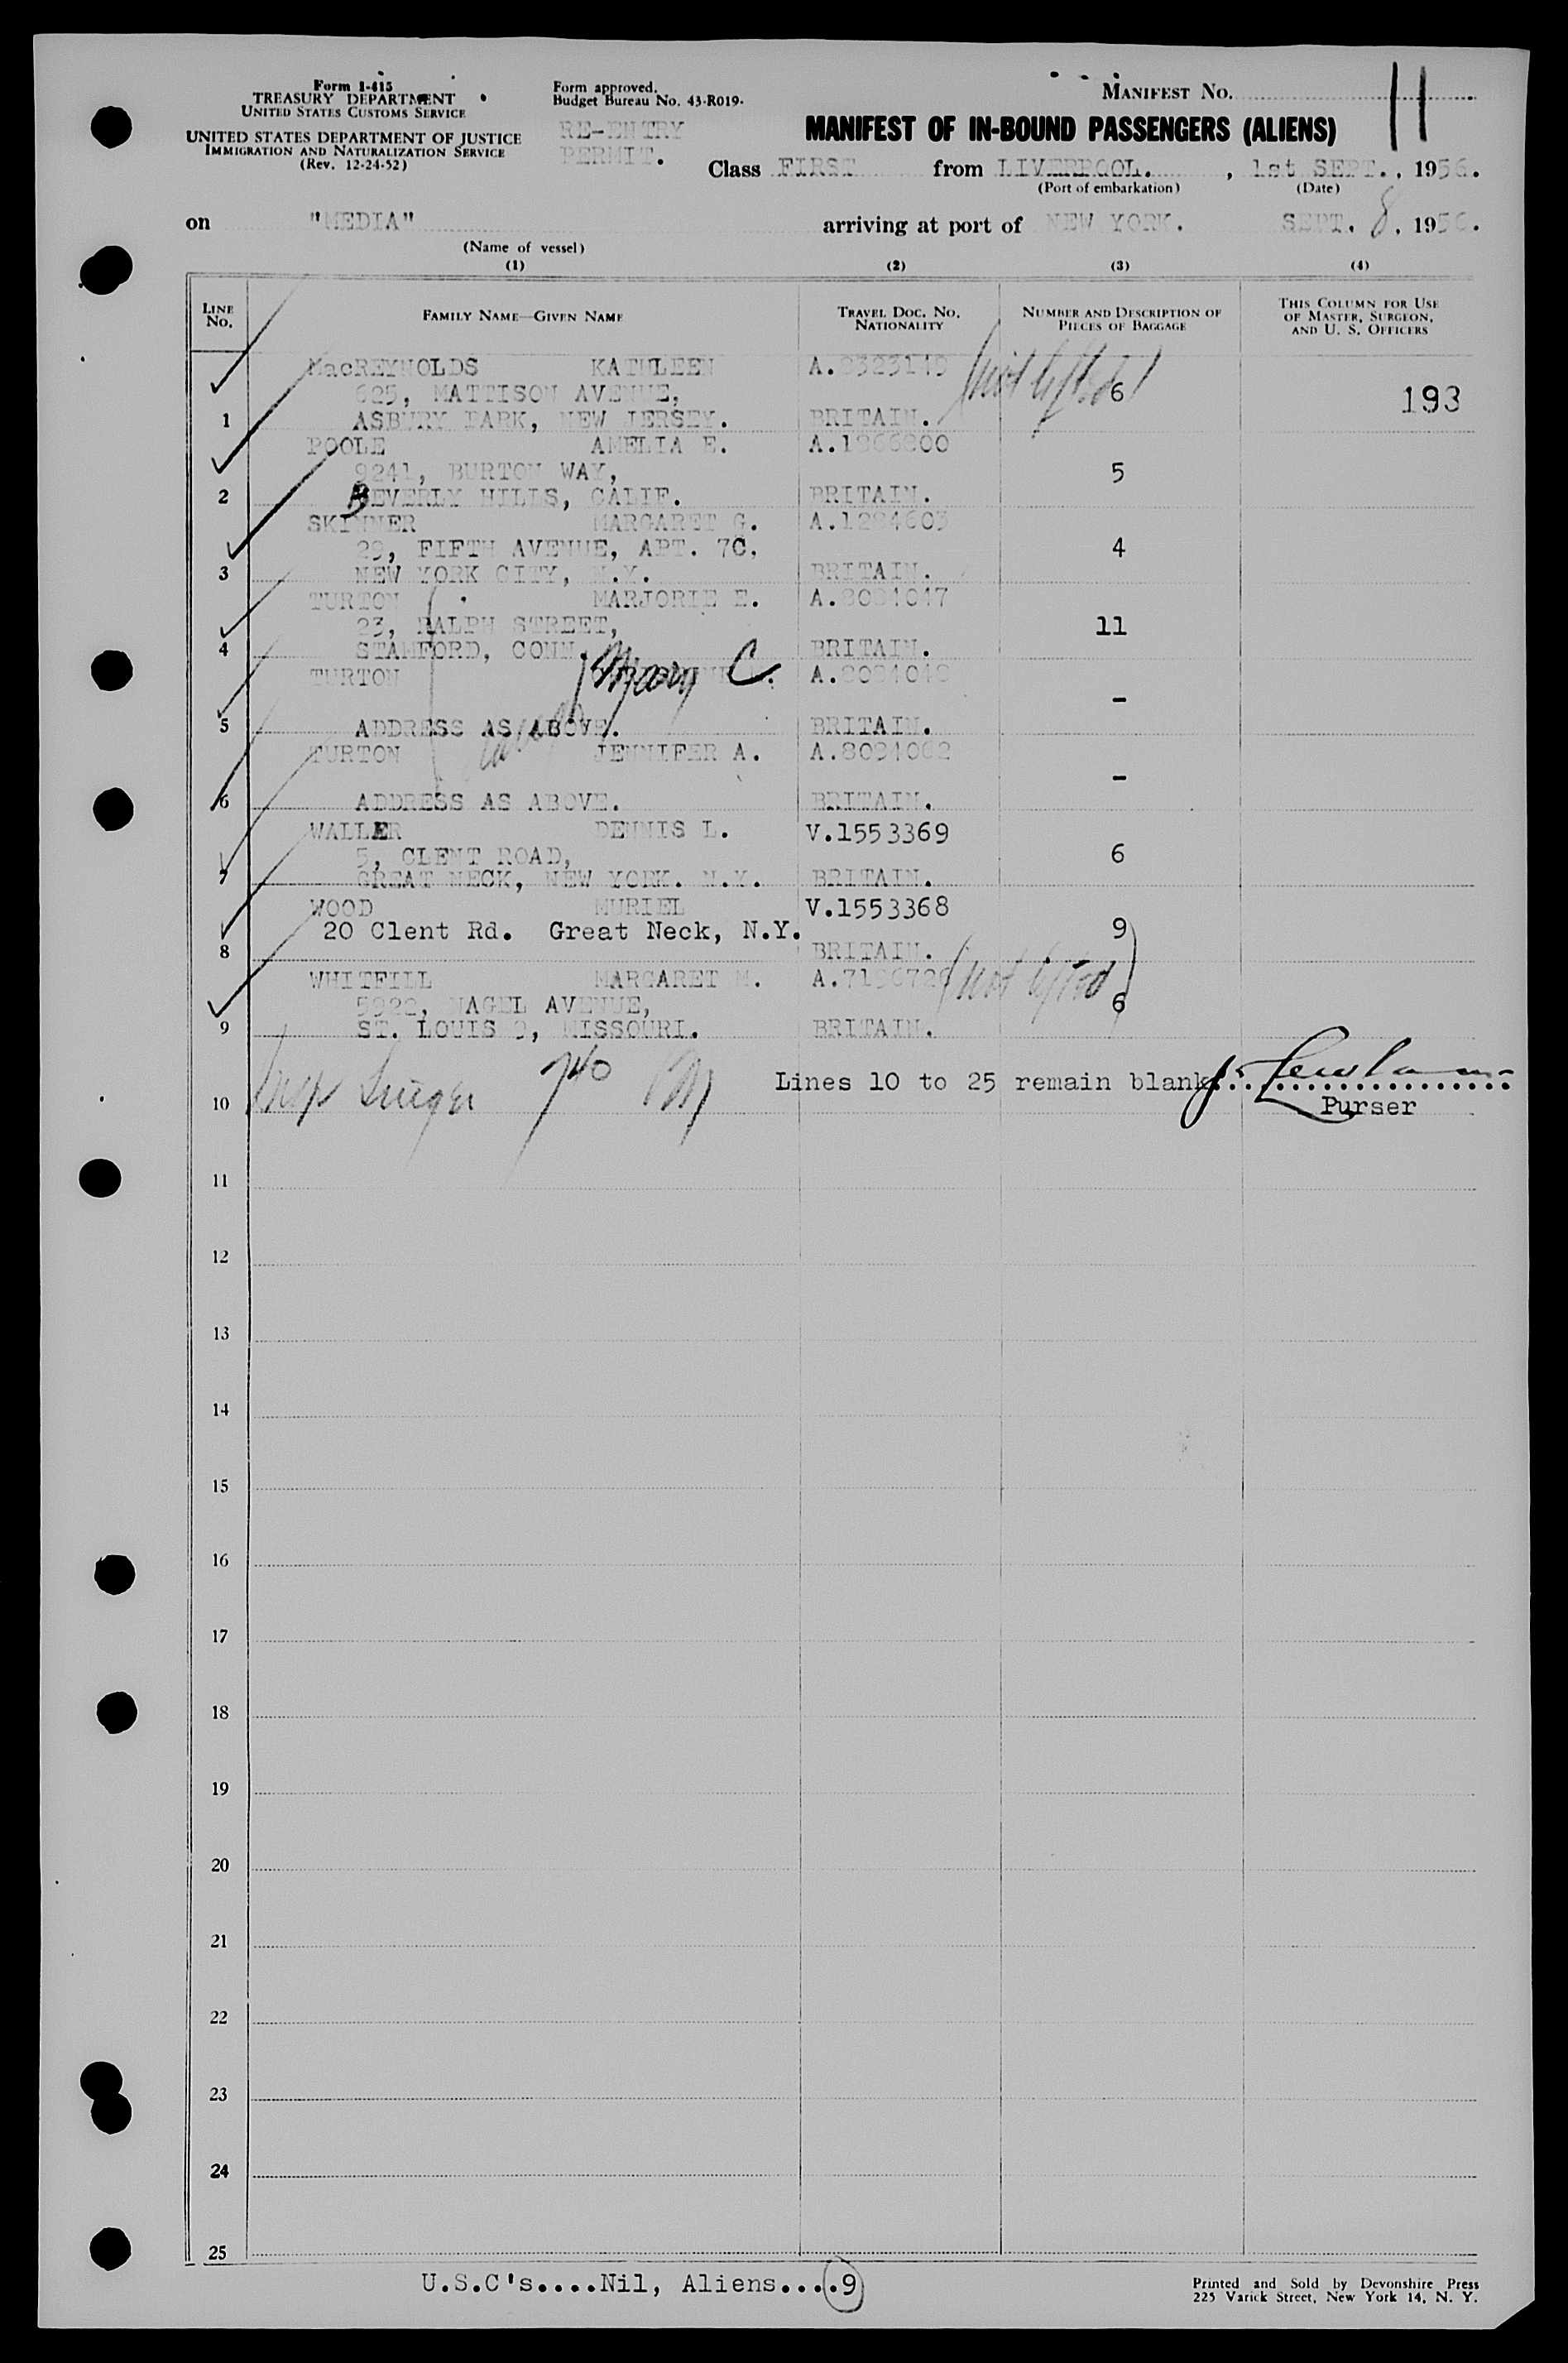 Form I-415
TREASURY DEPARTMENT
UNITED STATES CUSTOMS SERVICE
UNITED STATES DEPARTMENT OF JUSTICE
IMMIGRATION AND NATURALIZATION SERVICE
(Rev. 12-24-52)
Form approved.
Budget Bureau No. 43-R019.
RE-ENTRY
PERMIT.
MANIFEST NO. 11
MANIFEST OF IN-BOUND PASSENGERS (ALIENS)
Class FIRST from LIVERPOOL. , 1st SEPT., 1956.
(Port of embarkation) (Date)
on "MEDIA" arriving at port of NEW YORK. SEPT. 8, 1956.
(Name of vessel)
(1) (2) (3) (4)
LINE NO. FAMILY NAME—GIVEN NAME TRAVEL DOC. NO. NATIONALITY NUMBER AND DESCRIPTION OF PIECES OF BAGGAGE THIS COLUMN FOR USE OF MASTER, SURGEON, AND U. S. OFFICERS
MacREYNOLDS KATHLEEN (not lifted)
625, MATTISON AVENUE, 6 193
1 ASBURY PARK, NEW JERSEY. BRITAIN.
POOLE AMELIA E. A.1866800
9241, BURTON WAY, 5
2 BEVERLY HILLS, CALIF. BRITAIN.
SKINNER MARGARET G. A.1284603
29, FIFTH AVENUE, APT. 7C. 4
3 NEW YORK CITY, N.Y. BRITAIN.
TURTON MARJORIE E.
23, RALPH STREET, 11
4 STAMFORD, CONN. BRITAIN.
TURTON C.
-
5 ADDRESS AS ABOVE. BRITAIN.
TURTON JENNIFER A.
-
6 ADDRESS AS ABOVE. BRITAIN.
WALLER DENNIS L. V.1553369
5, CLENT ROAD, 6
7 GREAT NECK, NEW YORK. N.Y. BRITAIN.
WOOD MURIEL V.1553368
20 Clent Rd. Great Neck, N.Y. 9
8 BRITAIN.
WHITFILL MARGARET M. (not lifted)
5922, NAGEL AVENUE, 6
9 ST. LOUIS 9, MISSOURI. BRITAIN.
10 740 Lines 10 to 25 remain blank
Purser
11
12
13
14
15
16
17
18
19
20
21
22
23
24
25
U.S.C's....Nil, Aliens....9
Printed and Sold by Devonshire Press
225 Varick Street, New York 14, N. Y.